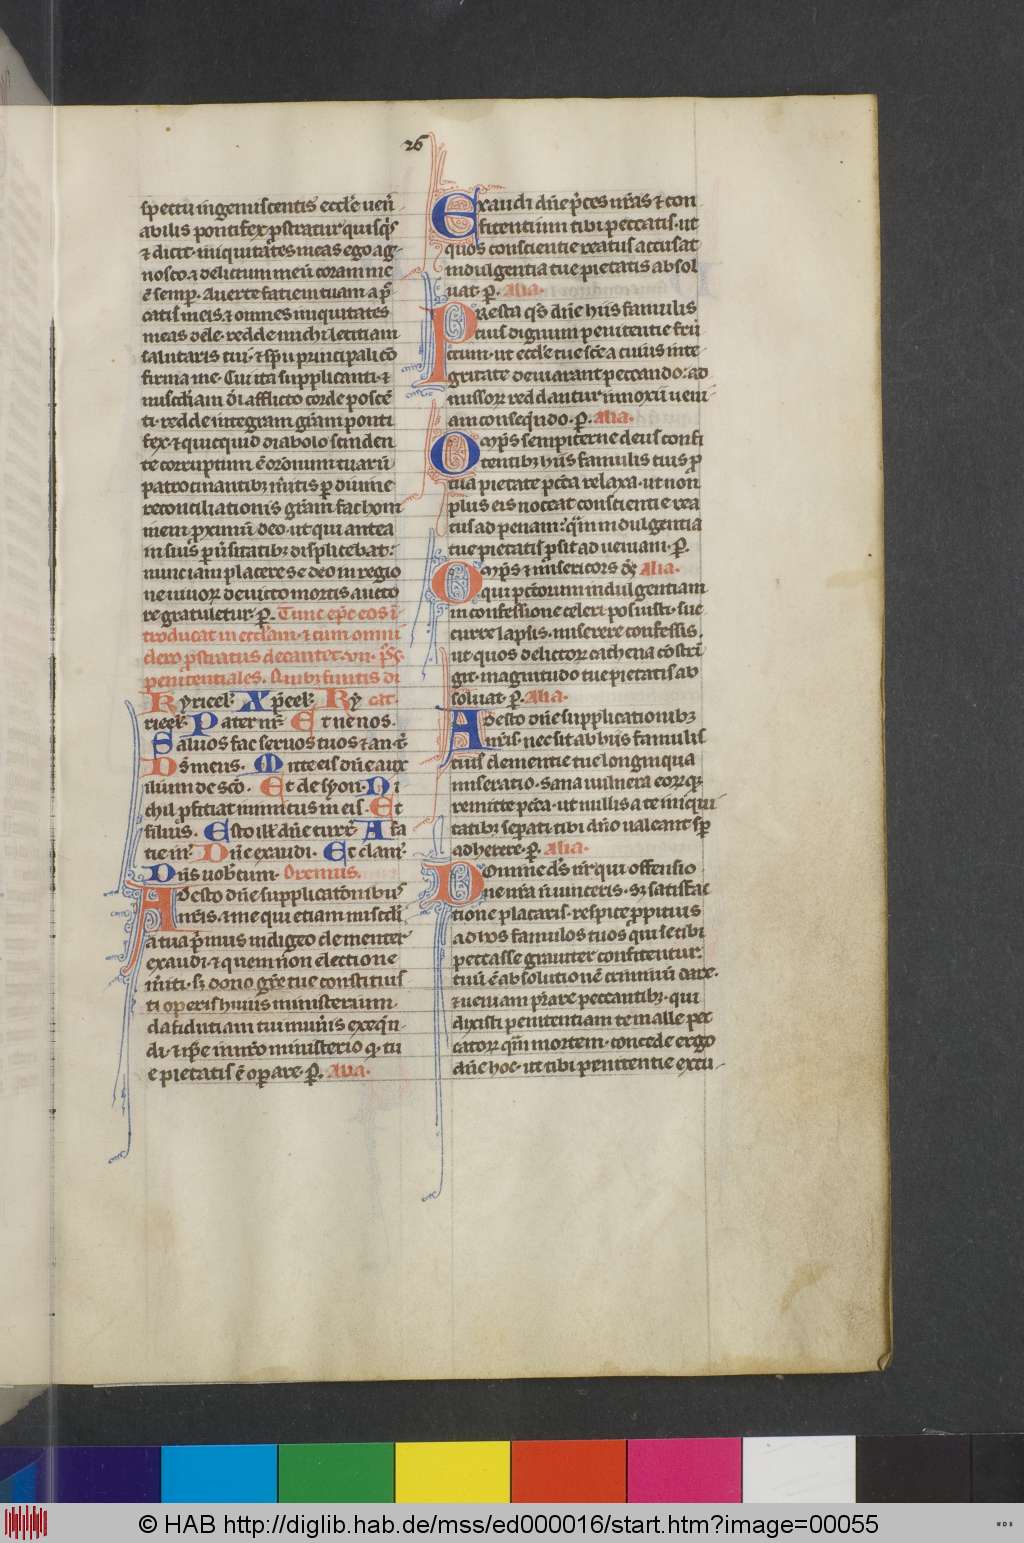 26
spectu ingemiscentis eccl'e ven̄
abilis pontifex ꝓstratur quisq's
⁊ dicit· iniquitates meas ego ag-
nosco· ⁊ delictum meū coram me
ē semp̲· Auerte faciem tuam a p̄c
catis meis· ⁊ omnes iniquitates
meas dele· redde michi letitiam
salutaris tui· ⁊ sp̄u principali cō
firma me· Cui ita supplicanti· ⁊
misc̄diam d̄i afflicto corde poscē
ti· redde integram gr̄am ponti
fex· ⁊ quicquid diabolo scinden
te corruptum ē or̄onum tuarū
patrocinantibꝫ m̄itis p̲ diuine
reconciliationis gr̄am fac hom
inem ꝓximū deo· ut qui antea
in suis p̲uersitatibꝫ displicebat·
nunc iam placere se deo in regio
ne uiuoꝝ deuicto mortis aucto
re gratuletur· p̲. Tunc ep̄c eos ī
troducat in eccl'am· ⁊ cum omni
clero ꝓstratus decantet· vii· p̄s·
penitentiales. Quibꝫ finitis di
Kyrieel' Xp̄eel' Ky cat·
rieel' Pater nr̄ Et ne nos·
Saluos fac seruos tuos ⁊ an· t̄
Ds̄ meus. Mitte eis dn̄e aux
ilium de sc̄o. Et de syon· Ni
chil ꝓficiat inimicus in eis. Et
filius. Esto ill' dn̄e turr̄ A fa
cie in̄ Dn̄e exaudi· Et clam̄
Dn̄s uobcum· Oremus.
Adesto dn̄e supplicationibus
nr̄is· ⁊ me qui etiam misc̄di
a tua p'mus indigeo clementer
exaudi· ⁊ quem non electione
m̄iti· sꝫ dono gr̄e tue constituis
ti operis huius ministerium·
da fidutiam tui mun̄is exeq̄n-
di· ⁊ ip̄e in nr̄o ministerio q· tu
e pietatis ē op̲are· p̲. Alia·
Exaudi dn̄e p'ces nr̄as ⁊ con
fitentium tibi peccatis· ut
quos conscientie reatus accusat
indulgentia tue pietatis absol
uat· p̲. Alia·
Presta qs̄ dn̄e hiis famulis
tuis dignum penitentie fru
ctum· ut eccl'e tue sc̄e a cuius inte-
gritate deuiarant peccando· ad
missoꝝ reddantur innoxii ueni
am conseq̄ndo· p̲. Alia·
Omp̄s sempiterne deus confi
tentibꝫ hiis famulis tuis ꝓ
tua pietate pc̄ca relaxa· ut non
plus eis noceat conscientie rea
tus ad penam· q̄m indulgentia
tue pietatis ꝓsit ad ueniam· p̲.
Omp̄s ⁊ misericors ds̄ Alia·
qui pc̄torum indulgentiam
in confessione celeri posuisti· suc
curre lapsis· miserere confessis.
ut quos delictoꝝ cathena cōstrī
git· magnitudo tue pietatis ab
soluat· p̲. Alia·
Adesto dn̄e supplicationibꝫ
nr̄is· nec sit ab hiis famulis
tuis clementie tue longinqua
miseratio· sana uulnera eoꝝqꝫ
remitte pc̄ca· ut nullis a te iniqui
tatibꝫ sep̲ati tibi dn̄o ualeant sp̄
adherere· p̲. Alia·
Domine ds̄ nr̄ qui offensio
ne nr̄a n̄ uinceris· sꝫ satisfac
tione placaris· respice ꝓpitius
ad hos famulos tuos qui se tibi
peccasse grauiter confitentur·
tuū ē absolutionē criminū dare·
⁊ ueniam p̄stare peccantibꝫ· qui
dixisti penitentiam te malle pec
catoꝝ q̄m mortem· concede ergo
dn̄e hoc· ut tibi penitentie excu-
© HAB http://diglib.hab.de/mss/ed000016/start.htm?image=00055